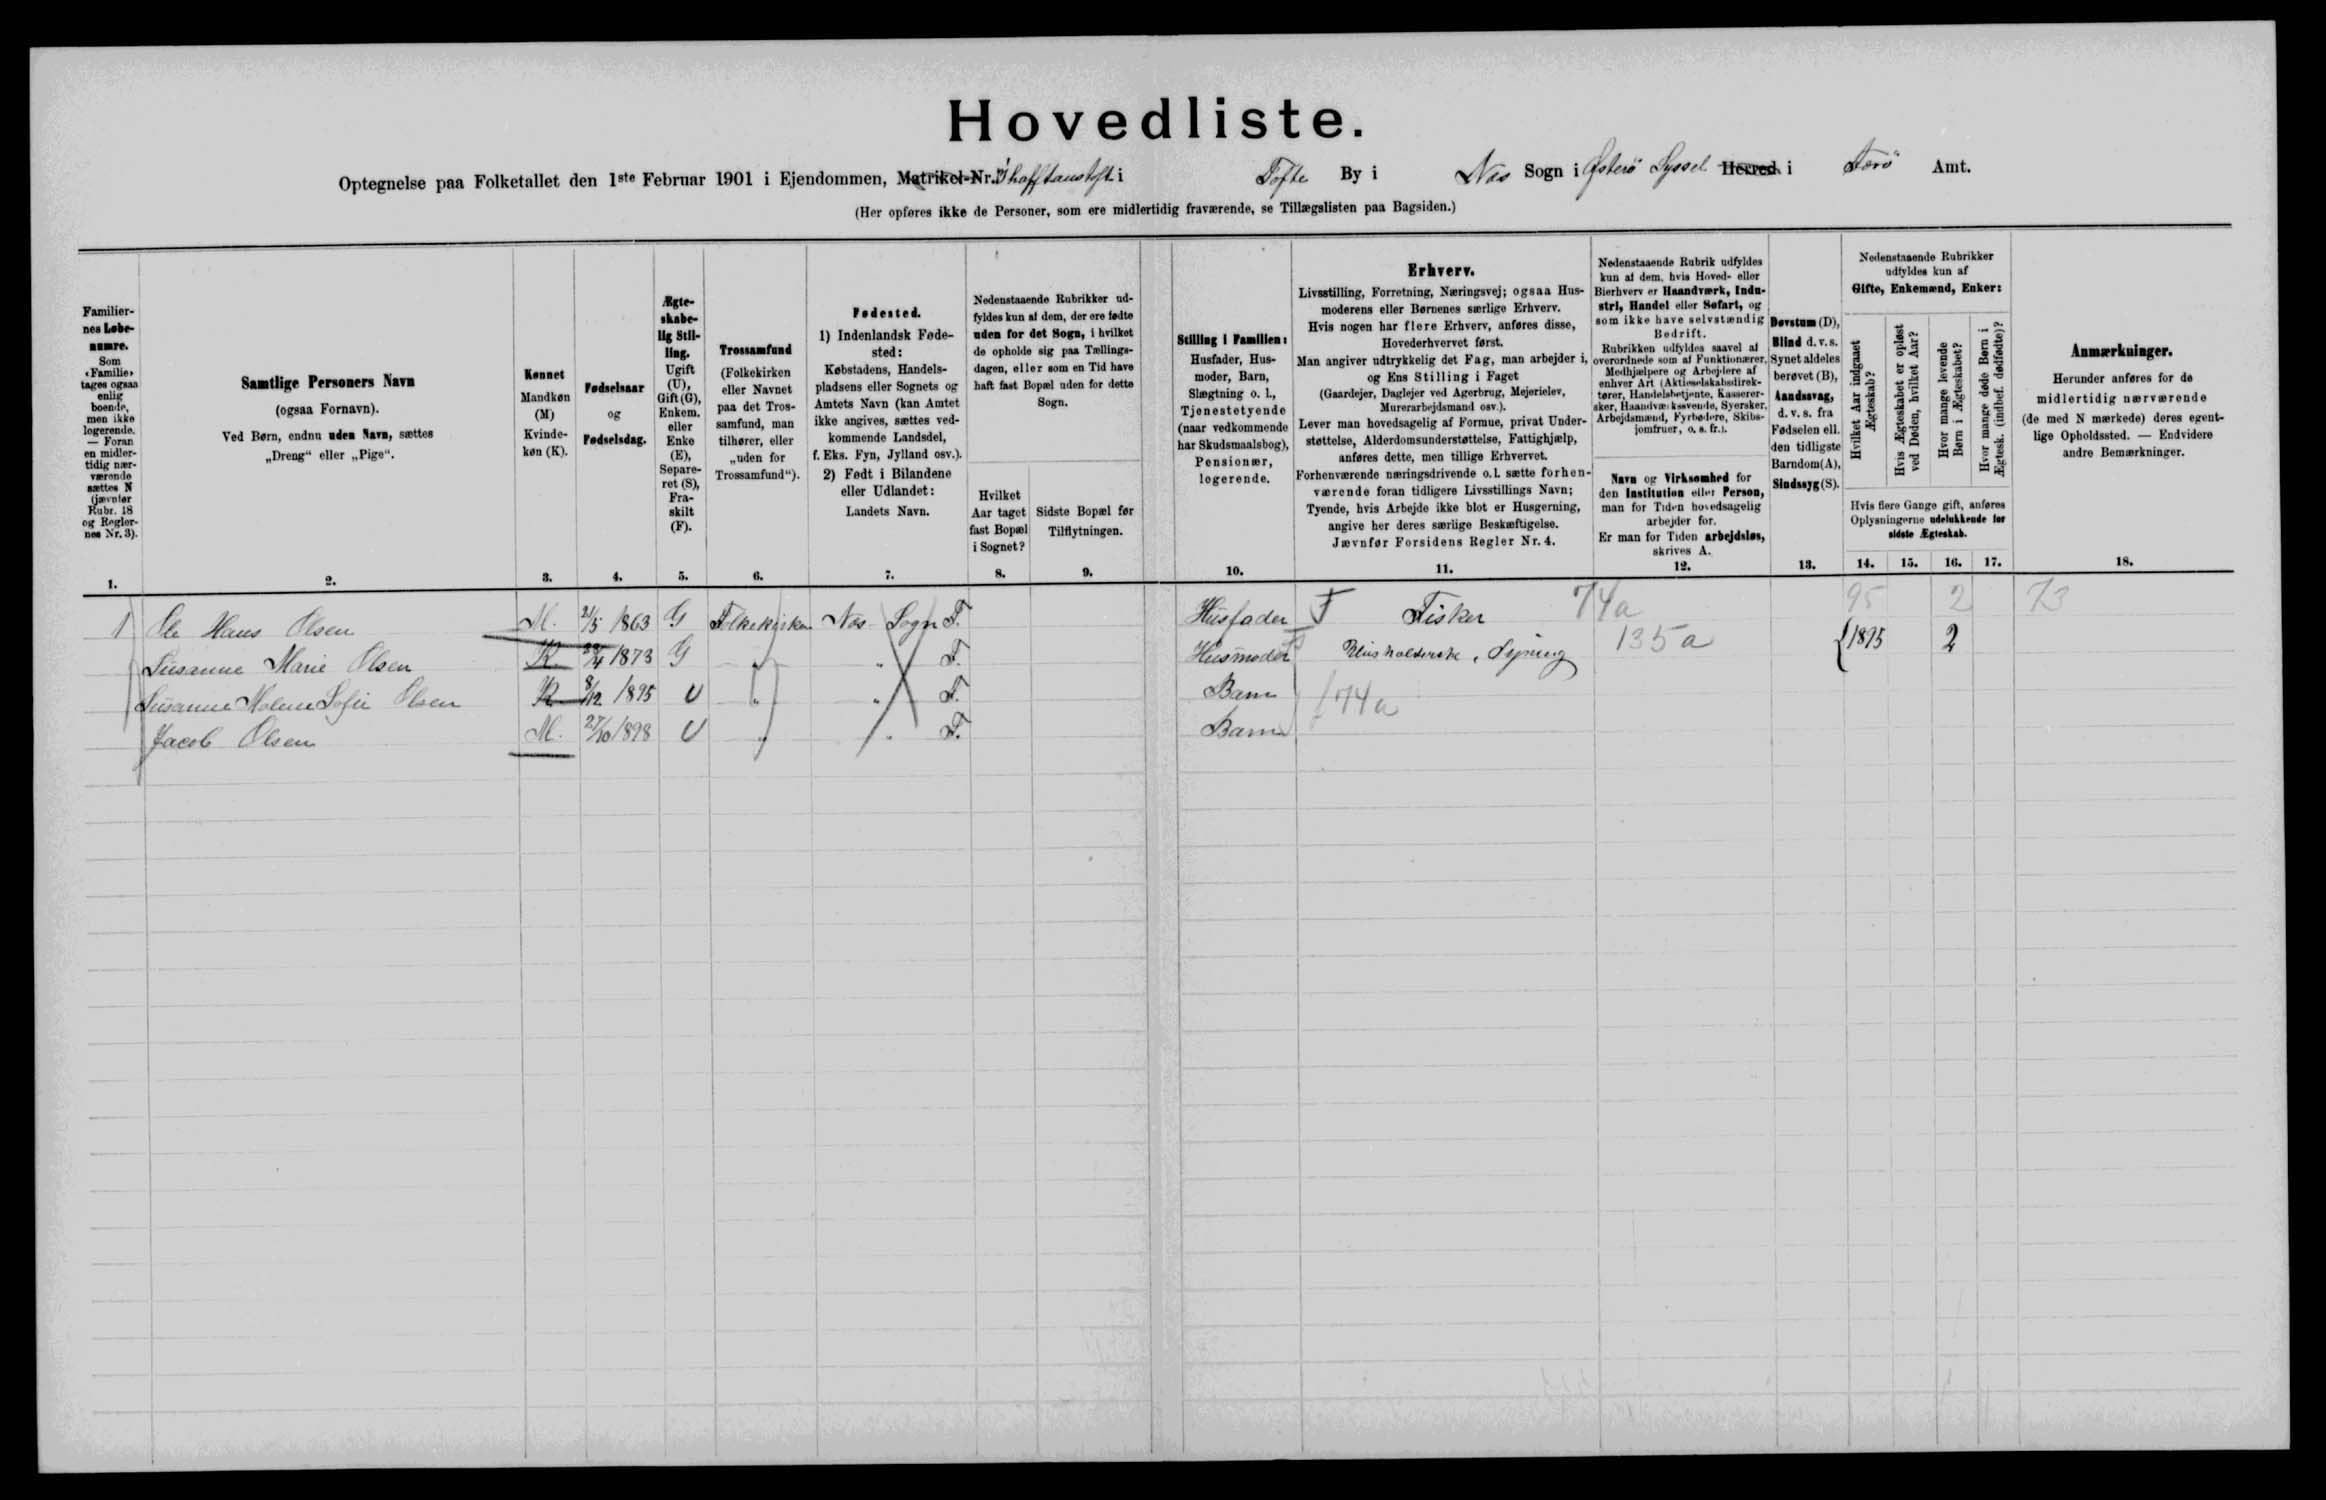 Hovedliste.
Optegnelse paa Folketallet den 1ste Februar 1901 i Ejendommen, Matrikel-Nr. i Tofte By i Nes Sogn i Østerø Syssel Herred i Færø Amt.
(Her opføres ikke de Personer, som ere midlertidig fraværende, se Tillægslisten paa Bagsiden.)
Familier-
nes Løbe-
numre.
Som
«Familie»
tages ogsaa
enlig
boende,
men ikke
logerende.
— Foran
en midler-
tidig nær-
værende
sættes N
(jævnfør
Rubr. 18
og Regler-
nes Nr. 3).
1.
Samtlige Personers Navn
(ogsaa Fornavn).
Ved Børn, endnu uden Navn, sættes
„Dreng“ eller „Pige“.
2.
Kønnet
Mandkøn
(M)
Kvinde-
køn (K).
3.
Fødselsaar
og
Fødselsdag.
4.
Ægte-
skabe-
lig Stil-
ling.
Ugift
(U),
Gift (G),
Enkem.
eller
Enke
(E),
Separe-
ret (S),
Fra-
skilt
(F).
5.
Trossamfund
(Folkekirken
eller Navnet
paa det Tros-
samfund, man
tilhører, eller
„uden for
Trossamfund“).
6.
Fødested.
1) Indenlandsk Føde-
sted:
Købstadens, Handels-
pladsens eller Sognets og
Amtets Navn (kan Amtet
ikke angives, sættes ved-
kommende Landsdel,
f. Eks. Fyn, Jylland osv.).
2) Født i Bilandene
eller Udlandet:
Landets Navn.
7.
Nedenstaaende Rubrikker ud-
fyldes kun af dem, der ere fødte
uden for det Sogn, i hvilket
de opholde sig paa Tællings-
dagen, eller som en Tid have
haft fast Bopæl uden for dette
Sogn.
Hvilket
Aar taget
fast Bopæl
i Sognet?
8.
Sidste Bopæl før
Tilflytningen.
9.
Stilling i Familien:
Husfader, Hus-
moder, Barn,
Slægtning o. l.,
Tjenestetyende
(naar vedkommende
har Skudsmaalsbog),
Pensionær,
logerende.
10.
Erhverv.
Livsstilling, Forretning, Næringsvej; ogsaa Hus-
moderens eller Børnenes særlige Erhverv.
Hvis nogen har flere Erhverv, anføres disse,
Hovederhvervet først.
Man angiver udtrykkelig det Fag, man arbejder i,
og Ens Stilling i Faget
(Gaardejer, Daglejer ved Agerbrug, Mejerielev,
Murerarbejdsmand osv.).
Lever man hovedsagelig af Formue, privat Under-
støttelse, Alderdomsunderstøttelse, Fattighjælp,
anføres dette, men tillige Erhvervet.
Forhenværende næringsdrivende o. l. sætte forhen-
værende foran tidligere Livsstillings Navn;
Tyende, hvis Arbejde ikke blot er Husgerning,
angive her deres særlige Beskæftigelse.
Jævnfør Forsidens Regler Nr. 4.
11.
Nedenstaaende Rubrik udfyldes
kun af dem, hvis Hoved- eller
Bierhverv er Haandværk, Indu-
stri, Handel eller Søfart, og
som ikke have selvstændig
Bedrift.
Rubrikken udfyldes saavel af
overordnede som af Funktionærer,
Medhjælpere og Arbejdere af
enhver Art (Aktieselskabsdirek-
tører, Handelsbetjente, Kasserer-
sker, Haandværkssvende, Syersker,
Arbejdsmænd, Fyrbødere, Skibs-
jomfruer, o. s. fr.).
Navn og Virksomhed for
den Institution eller Person,
man for Tiden hovedsagelig
arbejder for.
Er man for Tiden arbejdsløs,
skrives A.
12.
Døvstum (D),
Blind d. v. s.
Synet aldeles
berøvet (B),
Aandssvag,
d. v. s. fra
Fødselen ell.
den tidligste
Barndom (A),
Sindssyg (S).
13.
Nedenstaaende Rubrikker
udfyldes kun af
Gifte, Enkemænd, Enker:
Hvilket Aar indgaaet
Ægteskab?
Hvis Ægteskabet er opløst
ved Døden, hvilket Aar?
Hvor mange levende
Børn i Ægteskabet?
Hvor mange døde Børn i
Ægtesk. (indbef. dødfødte)?
Hvis flere Gange gift, anføres
Oplysningerne udelukkende for
sidste Ægteskab.
14. 15. 16. 17.
Anmærkninger.
Herunder anføres for de
midlertidig nærværende
(de med N mærkede) deres egent-
lige Opholdssted. — Endvidere
andre Bemærkninger.
18.
1 Ole Hans Olsen M. 21/5 1863 G Folkekirken Nes Sogn F. Husfader F Fisker 74a 95 2 73
Susanne Marie Olsen K. 1873 G " " F. Husmoder Husholderske, Syning 135a {1895 2
Susanne Malene Sofie Olsen K 8/12 1895 U " " F. Barn 74a
Jacob Olsen M. 27/10 1898 U " " F. Barn